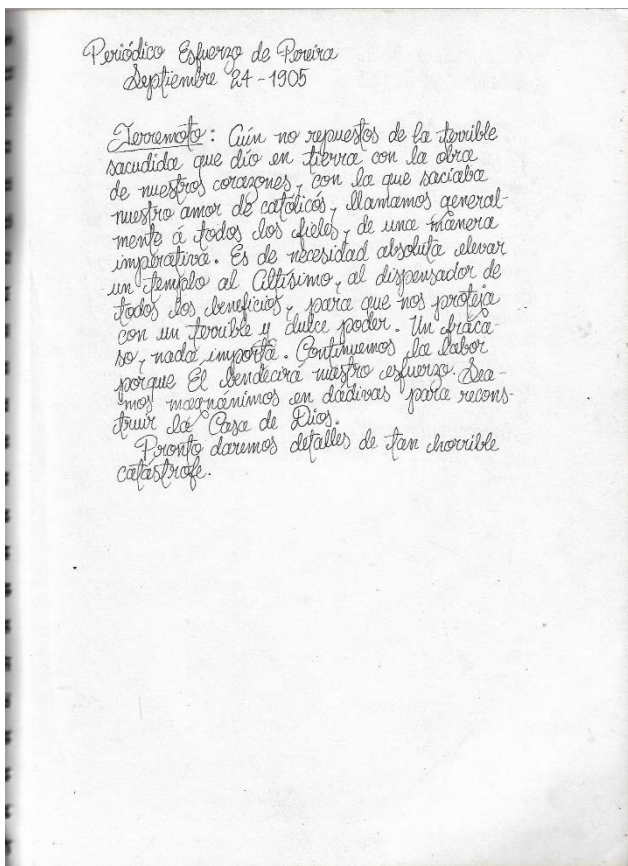 Periódico Esfuerzo de Pereira
Septiembre 24-1905
Terremoto: Aún no repuestos de la terrible
sacudida que dío en tierra con la obra
de nuestros corazones, con la que saciaba
nuestro amor de católicos, llamamos general-
mente á todos los fieles, de una manera
imperativa. Es de necesidad absoluta elevar
un templo al Altísimo, al dispensador de
todos los beneficios, para que nos proteja
con un terrible y dulce poder. Un fraca-
so, nada importa. Continuemos la labor
porque El bendecirá nuestro esfuerzo. Sea-
mos magnánimos en dádivas para recons-
truir la Casa de Dios.
Pronto daremos detalles de tan horrible
catástrofe.